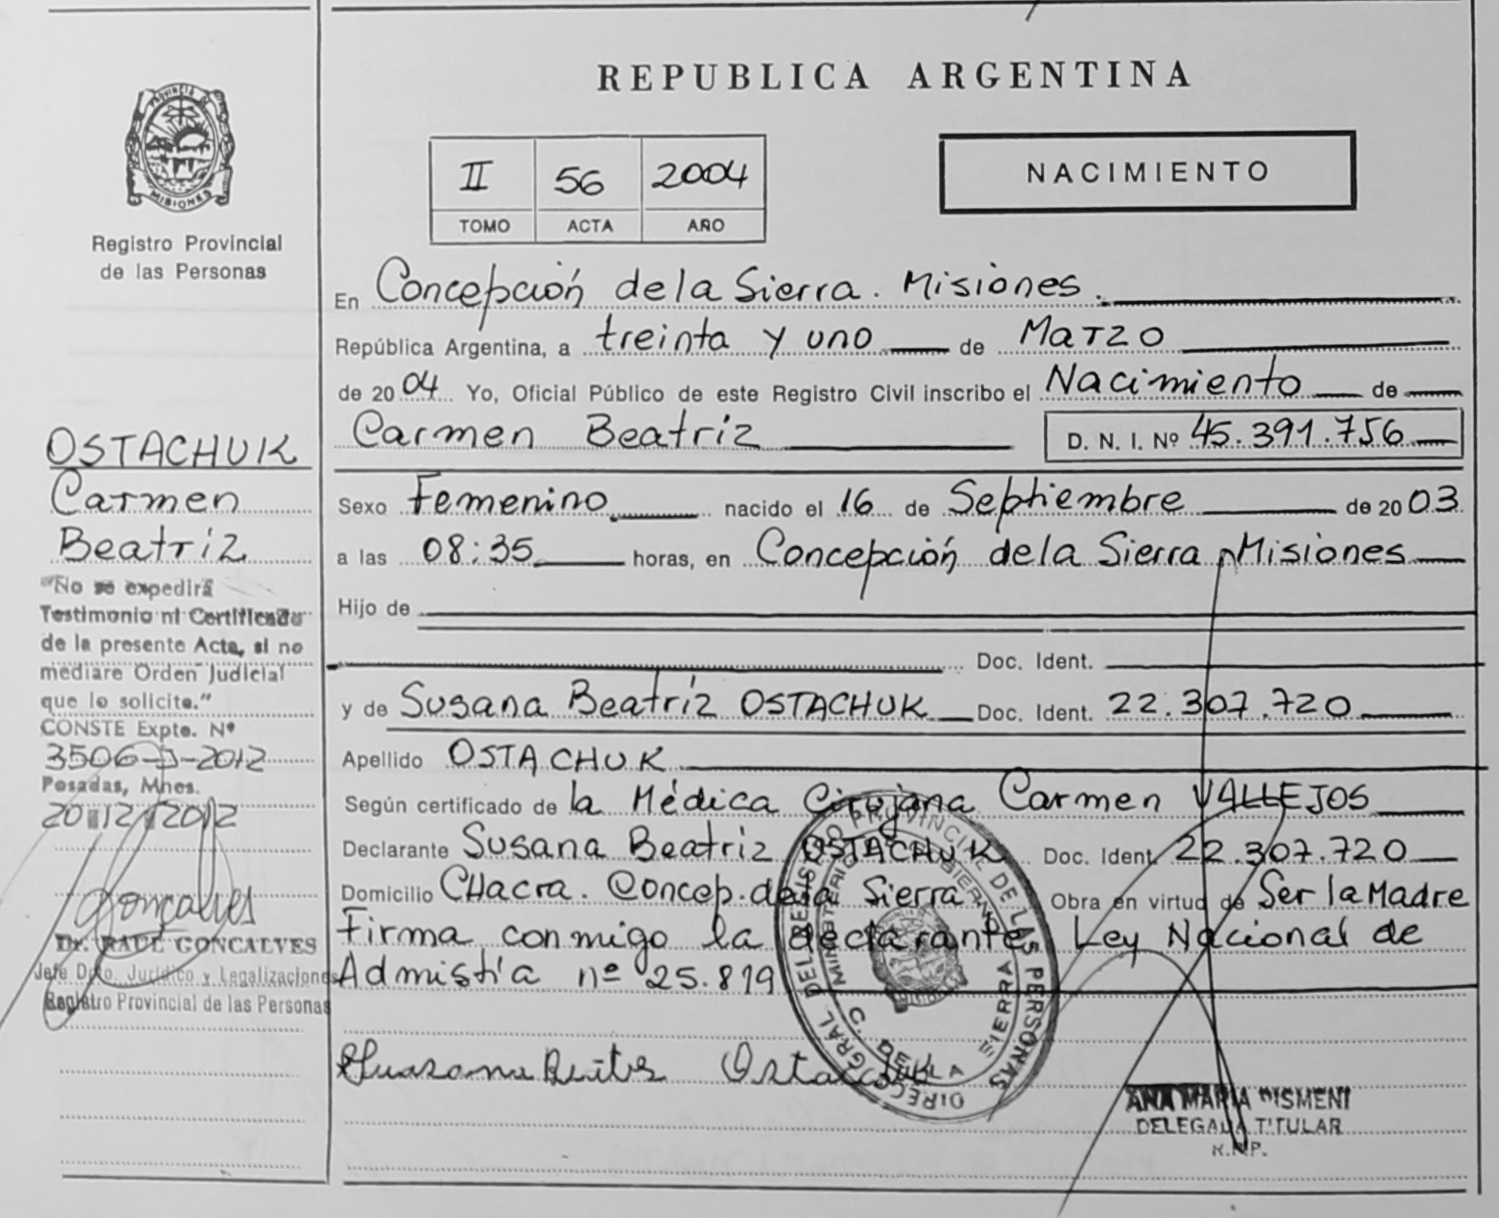 PROVINCIA DE
MISIONES
Registro Provincial
de las Personas
OSTACHUK
Carmen
Beatriz
"No se expedirá
Testimonio ni Certificado
de la presente Acta, si no
mediare Orden Judicial
que lo solicite."
CONSTE Expte. Nº
3506-J-2012
Posadas, Mnes.
20/12/2012
Goncalves
Dr. RAUL GONCALVES
Jefe Dpto. Jurídico y Legalizaciones
Registro Provincial de las Personas
REPUBLICA ARGENTINA
II 56 2004
TOMO ACTA AÑO
NACIMIENTO
En Concepción de la Sierra. Misiones.
República Argentina, a treinta y uno de Marzo
de 2004 Yo, Oficial Público de este Registro Civil inscribo el Nacimiento de
Carmen Beatriz D. N. I. Nº 45.391.756
Sexo Femenino. nacido el 16 de Septiembre de 2003
a las 08:35 horas, en Concepción de la Sierra, Misiones
Hijo de
Doc. Ident.
y de Susana Beatriz OSTACHUK Doc. Ident. 22.307.720
Apellido OSTACHUK
Según certificado de la Médica Cirujana Carmen VALLEJOS
Declarante Susana Beatriz OSTACHUK Doc. Ident. 22.307.720
Domicilio CHacra. Concep. de la Sierra. Obra en virtud de Ser la Madre
Firma conmigo la declarante, Ley Nacional de
Admistía nº 25.819
Ostachuk
DIRECC. GRAL DEL REGISTRO PROVINCIAL DE LAS PERSONAS
MINISTERIO GOBIERNO
C. DE LA SIERRA
ANA MARIA DISMENI
DELEGADA TITULAR
R.P.P.